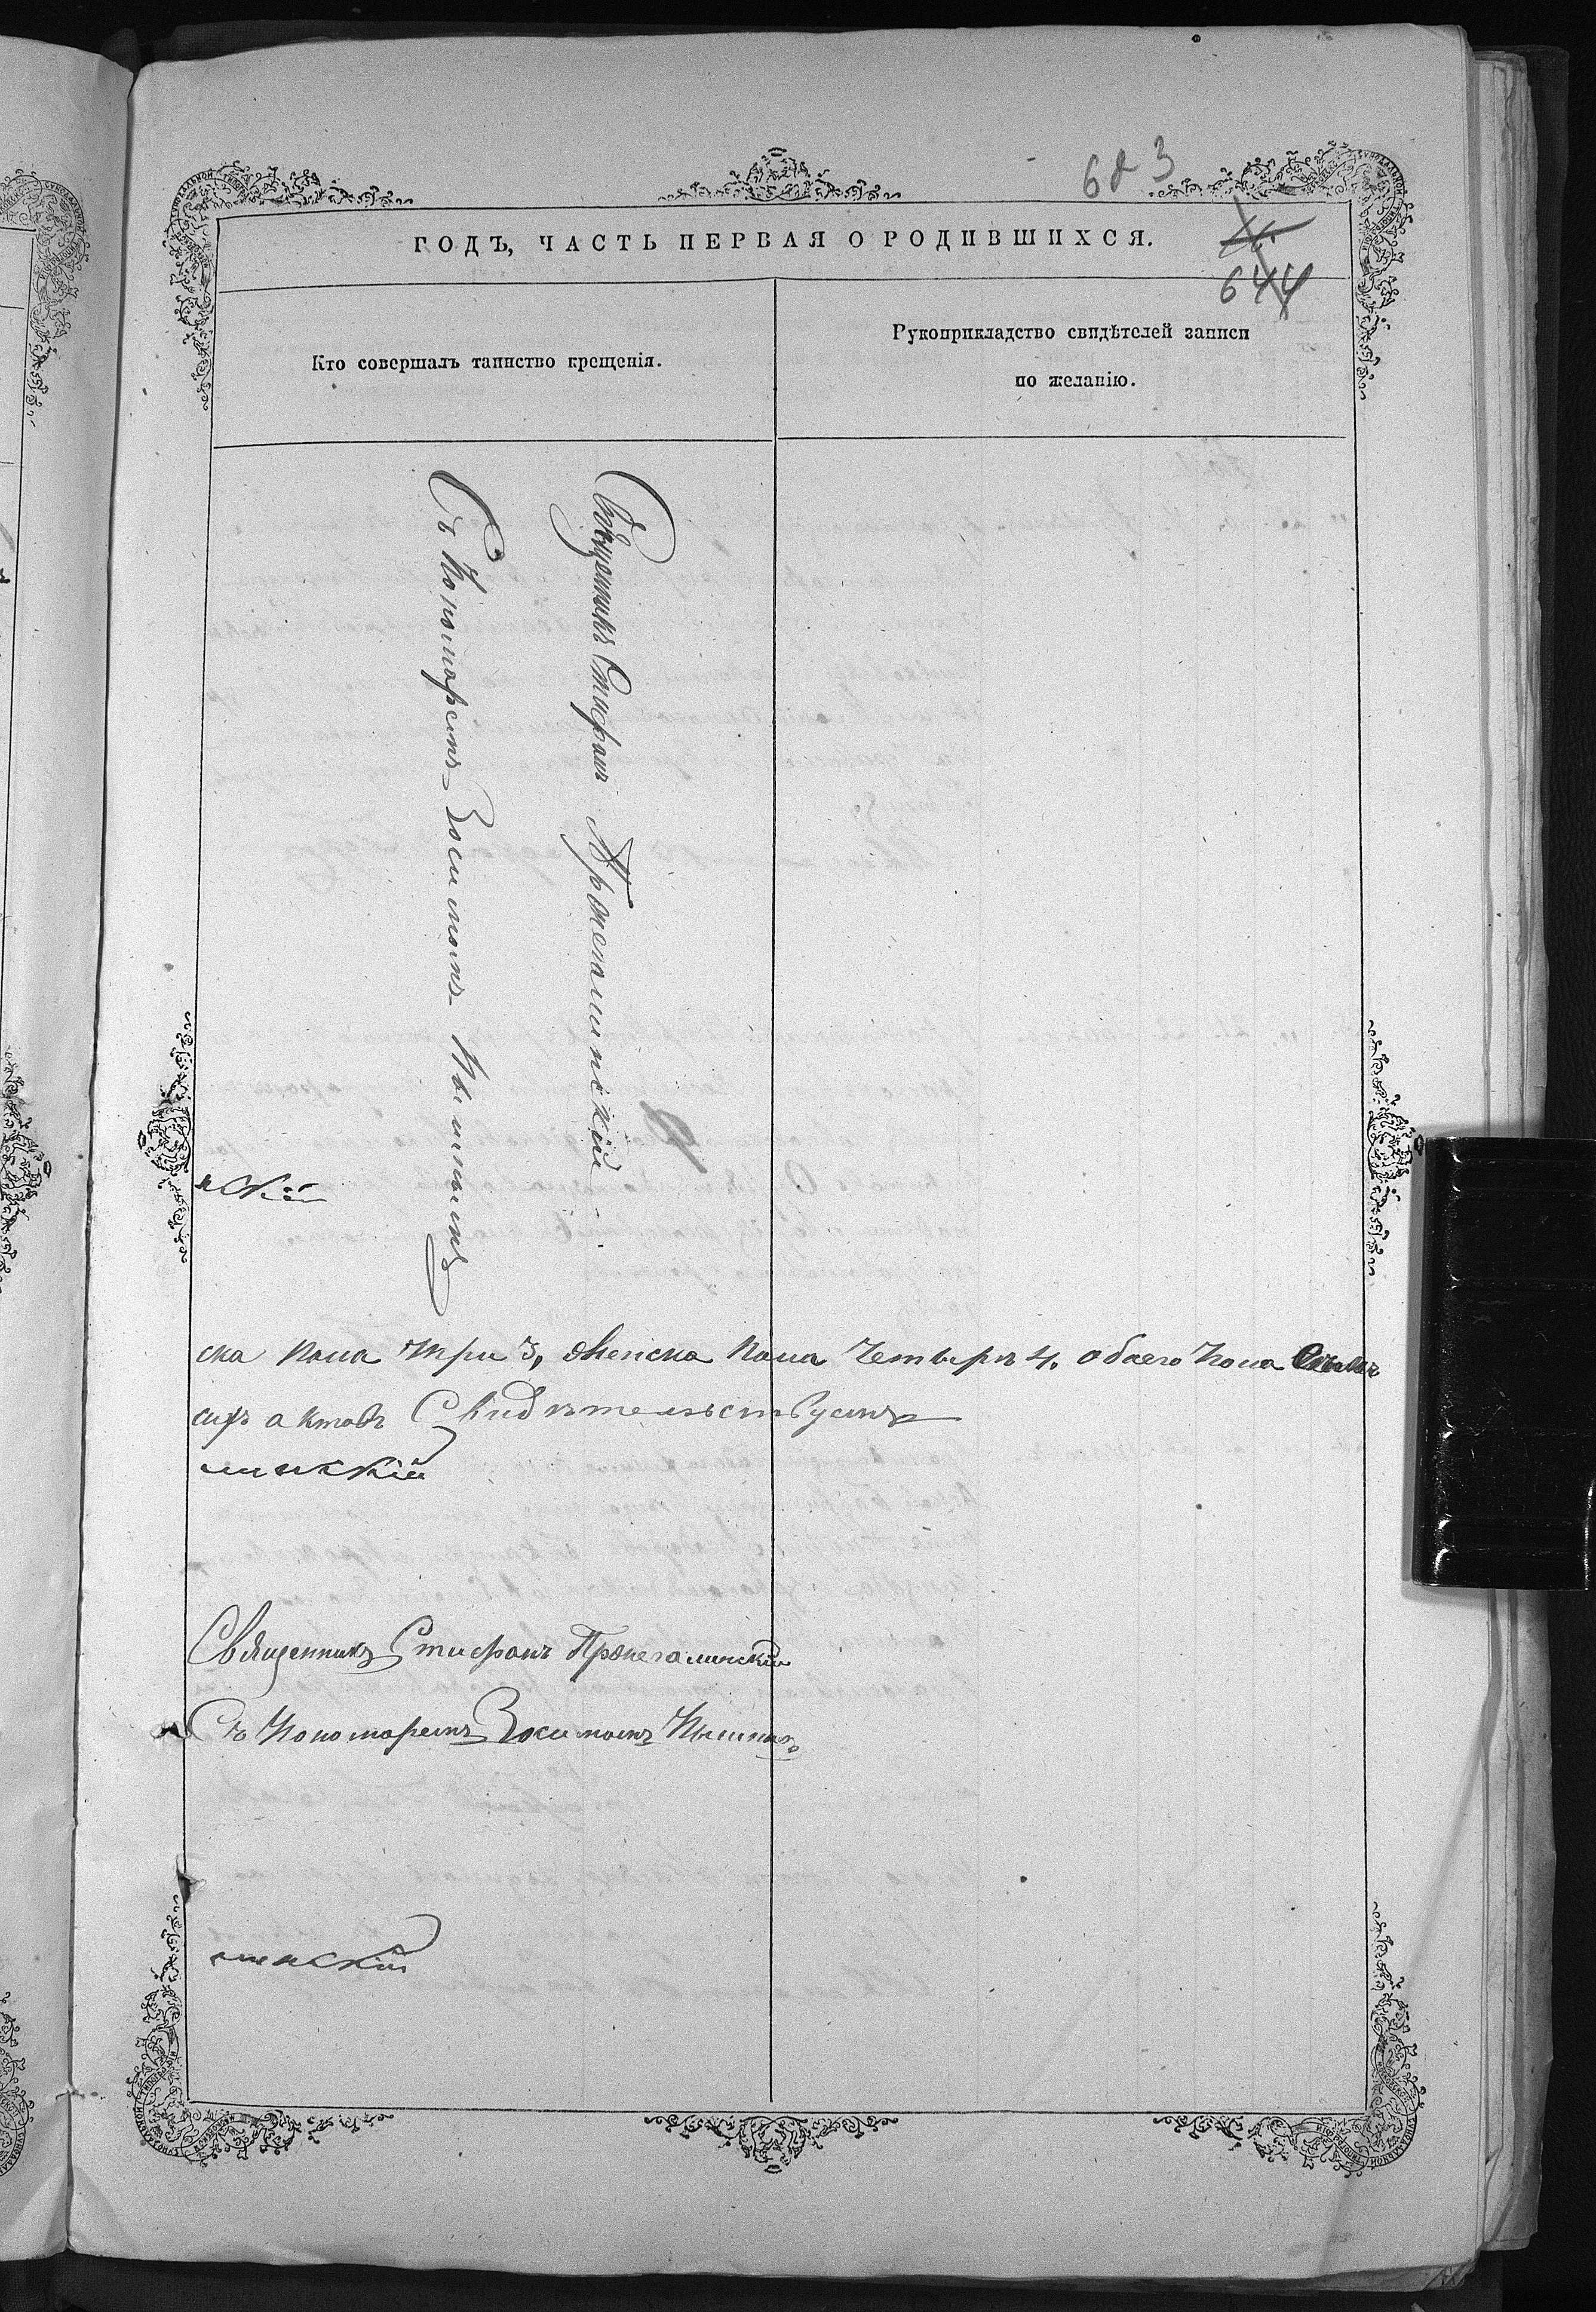 683
ГОДЪ, ЧАСТЬ ПЕРВАЯ О РОДИВШИХСЯ.
644
Кто совершалъ таинство крещенія.
Рукоприкладство свидѣтелей записи
по желанію.
Священникъ Стифанъ Пржегалинскій
Съ Пономаремъ Зосимомъ
нскій
ска пола три 3, женска пола Четыре 4. обоего пола
сихъ актовъ Свидѣтельствуемъ
линскій
Священникъ Стифанъ Пржегалинскій
Съ Пономаремъ Зосимомъ
линскій